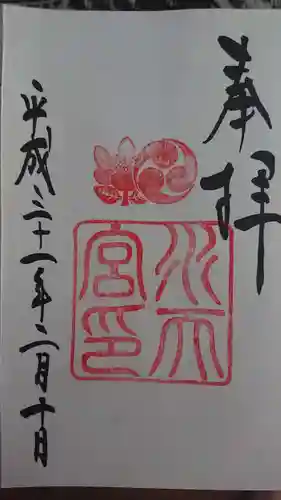 奉拝
水天
宮印
平成三十一年二月十日